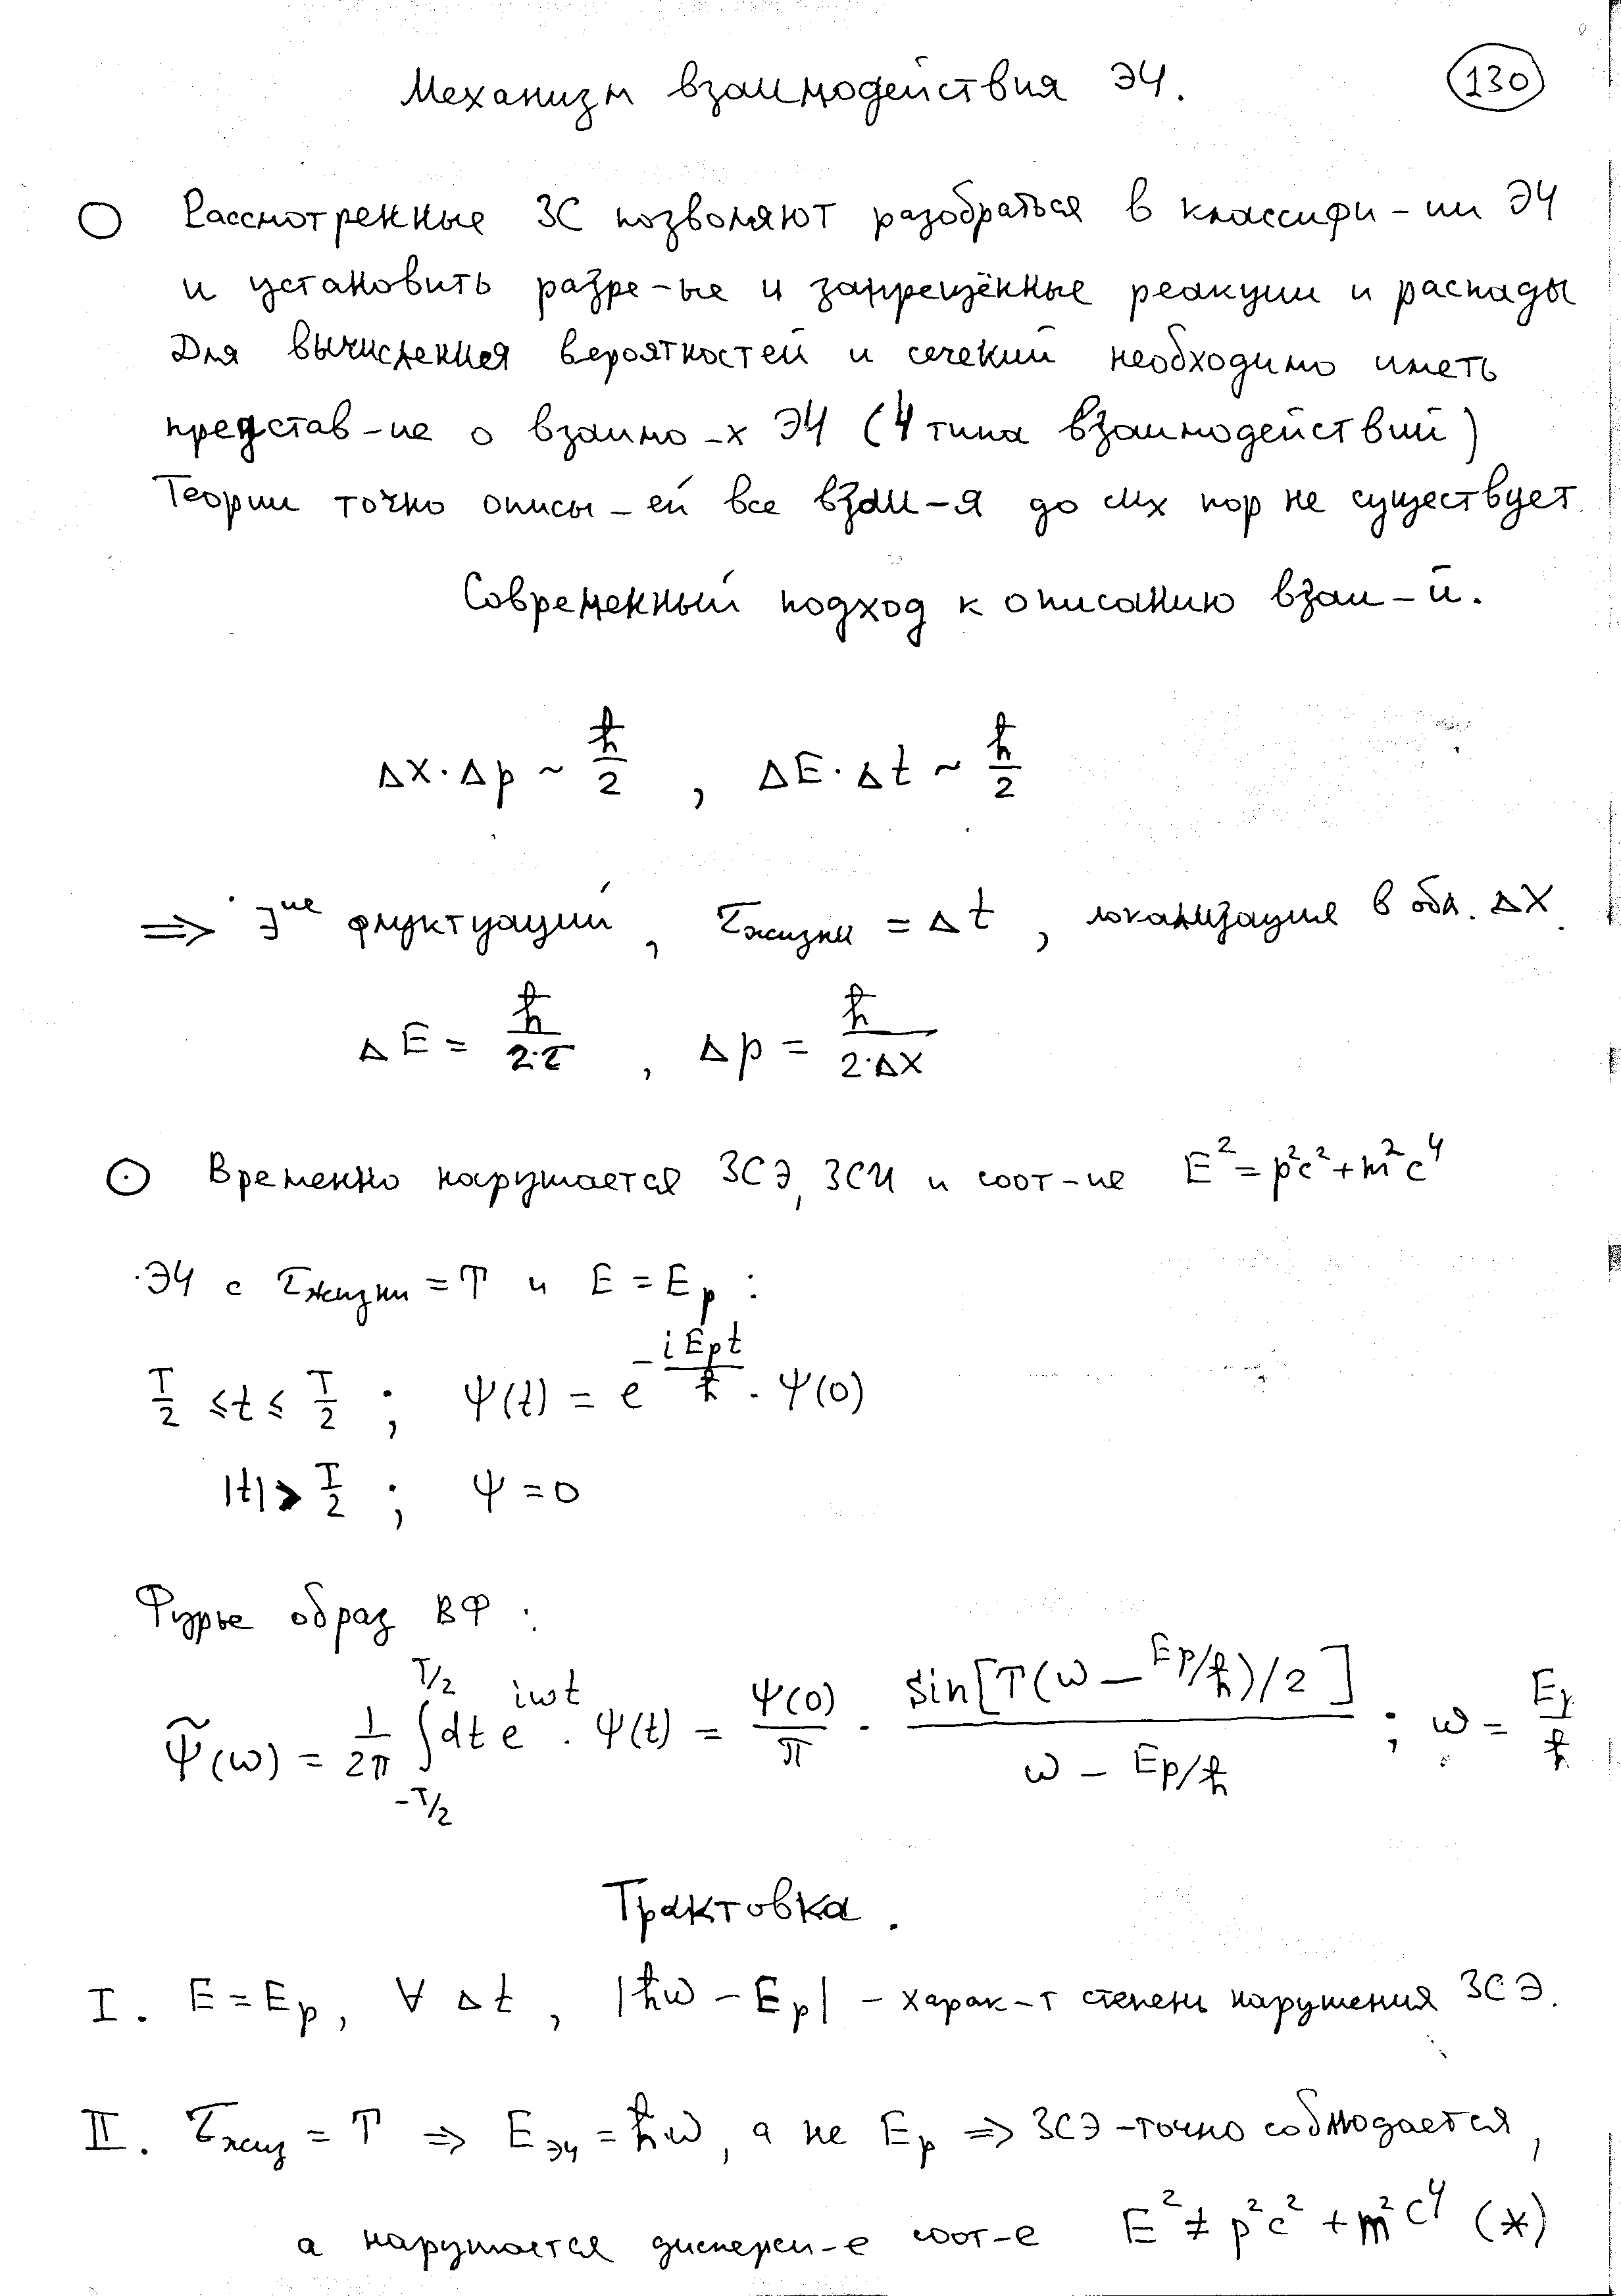 Механизм взаимодействия ЭЧ.
130
Рассмотренные ЗС позволяют разобраться в классифи-ии ЭЧ
и установить разре-ые и запрещённые реакции и распады
Для вычисления вероятностей и сечений необходимо иметь
представ-ие о взаимо-х ЭЧ (4 типа взаимодействий)
Теории точно описы-ей все взаи-я до сих пор не существует.
Современный подход к описанию взаи-й.
Δx·Δp ~ ħ/2 , ΔE·Δt ~ ħ/2
⇒ ∃ие флуктуаций, τжизни = Δt, локализация в обл. ΔX.
ΔE = ħ/(2·τ) , Δp = ħ/(2·ΔX)
⊙ Временно нарушается ЗСЭ, ЗСИ и соот-ие E² = p²c² + m²c⁴
ЭЧ с τжизни = T и E = Eₚ :
T/2 ≤ t ≤ T/2 ; Ψ(t) = e^(-iEₚt/ħ) · Ψ(0)
|t| > T/2 ; Ψ = 0
Фурье образ ВФ :
Ψ̃(ω) = 1/2π ∫_{-T/2}^{T/2} dt e^{iωt} · Ψ(t) = Ψ(0)/π · sin[T(ω − Eₚ/ħ)/2] / (ω − Eₚ/ħ) ; ω = Eₚ/ħ
Трактовка.
I. E = Eₚ, ∀ Δt , |ħω − Eₚ| – харак-т степень нарушения ЗСЭ.
II. τжиз = T ⇒ Eэч = ħω, а не Eₚ ⇒ ЗСЭ - точно соблюдается,
а нарушается дисперси-е соот-е E² ≠ p²c² + m²c⁴ (*)